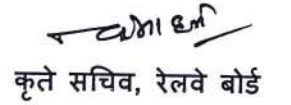 कृते सचिव, रेलवे बोर्ड